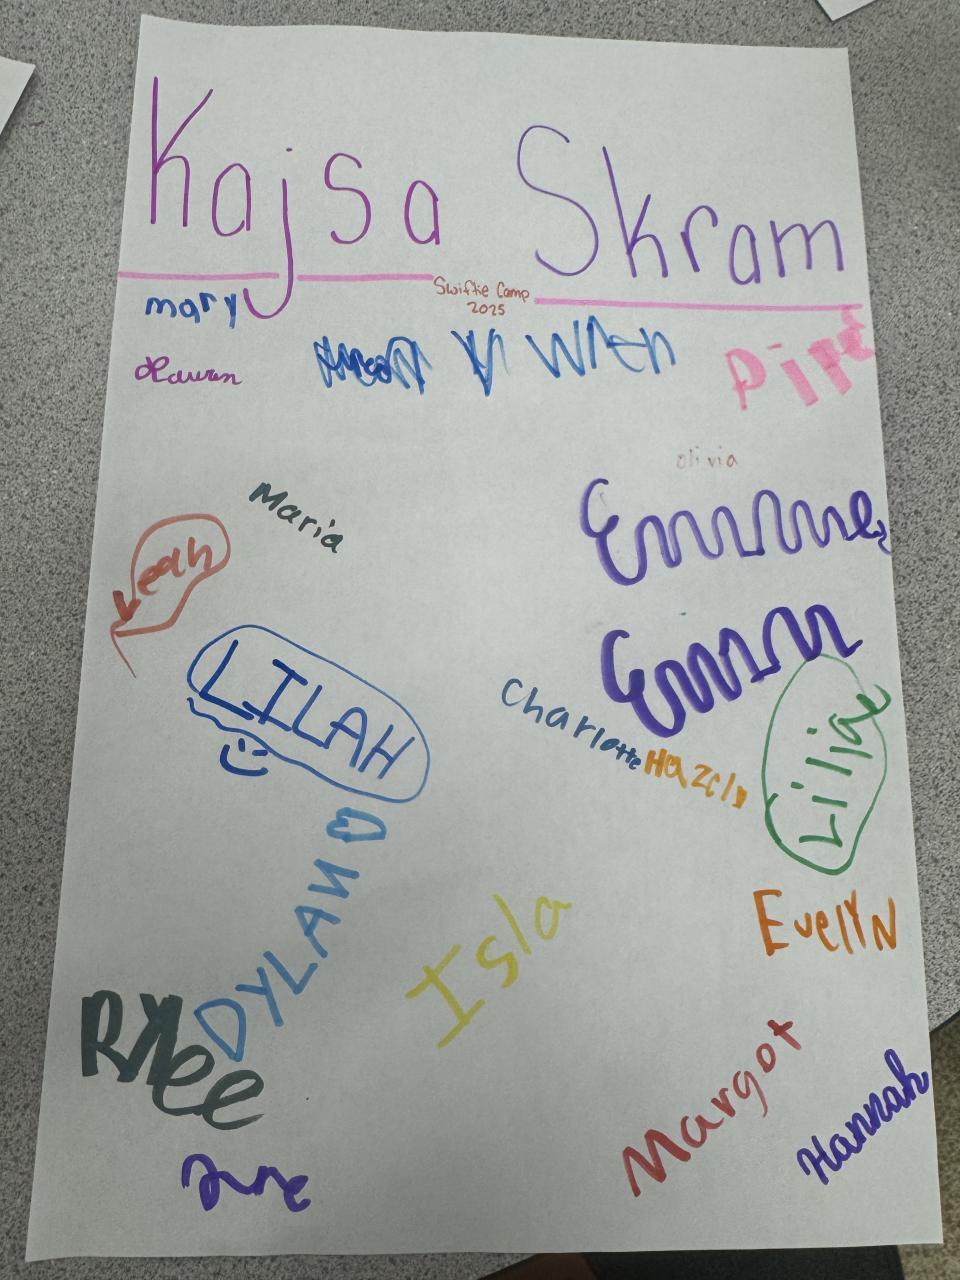 Kajsa Skram
Swiftie Camp
2025
mary
Lauren
Wren
Olivia
Maria
Leah
LILAH
Charlotte
Hazel
Lillian
DYLAN
Isla
EvelYN
RYlee
Margot
Hannah